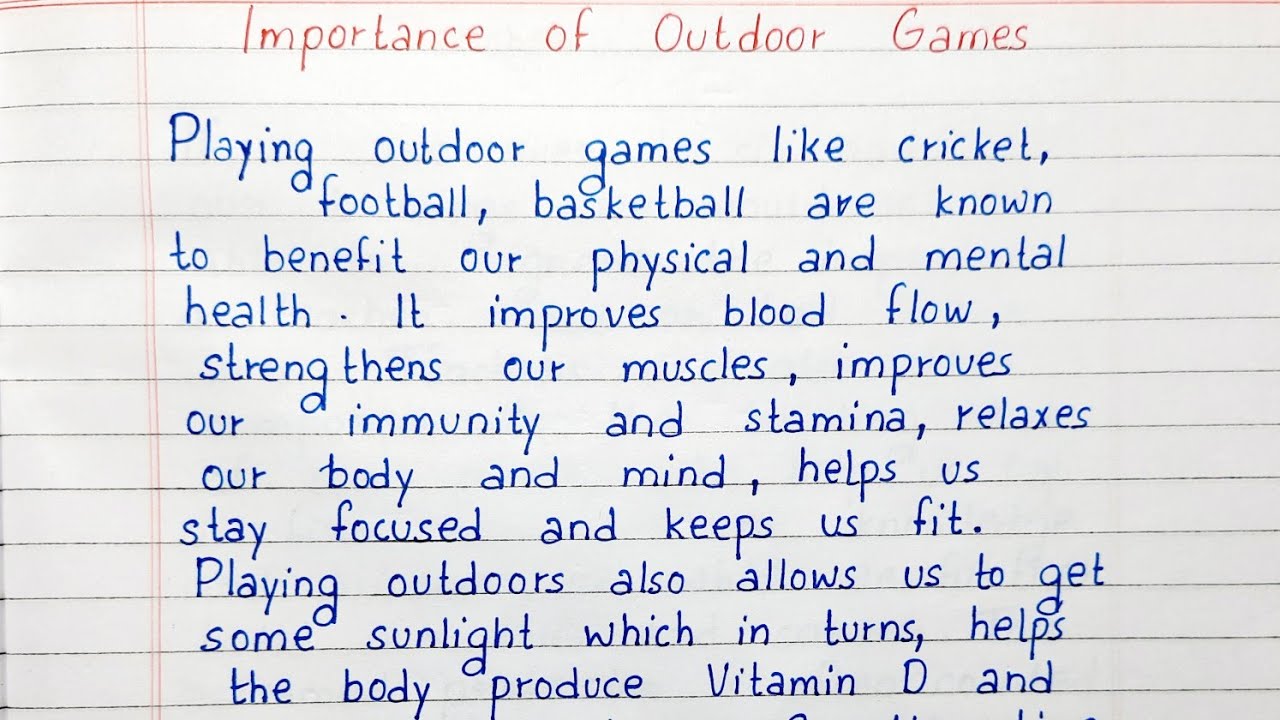 Importance of Outdoor Games
Playing outdoor games like cricket,
football, basketball are known
to benefit our physical and mental
health. It improves blood flow,
strengthens our muscles, improves
our immunity and stamina, relaxes
our body and mind, helps us
stay focused and keeps us fit.
Playing outdoors also allows us to get
some sunlight which in turns, helps
the body produce Vitamin D and